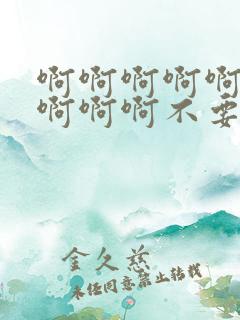 啊啊啊啊啊
啊啊啊不要
金久慈
未经同意禁止转载